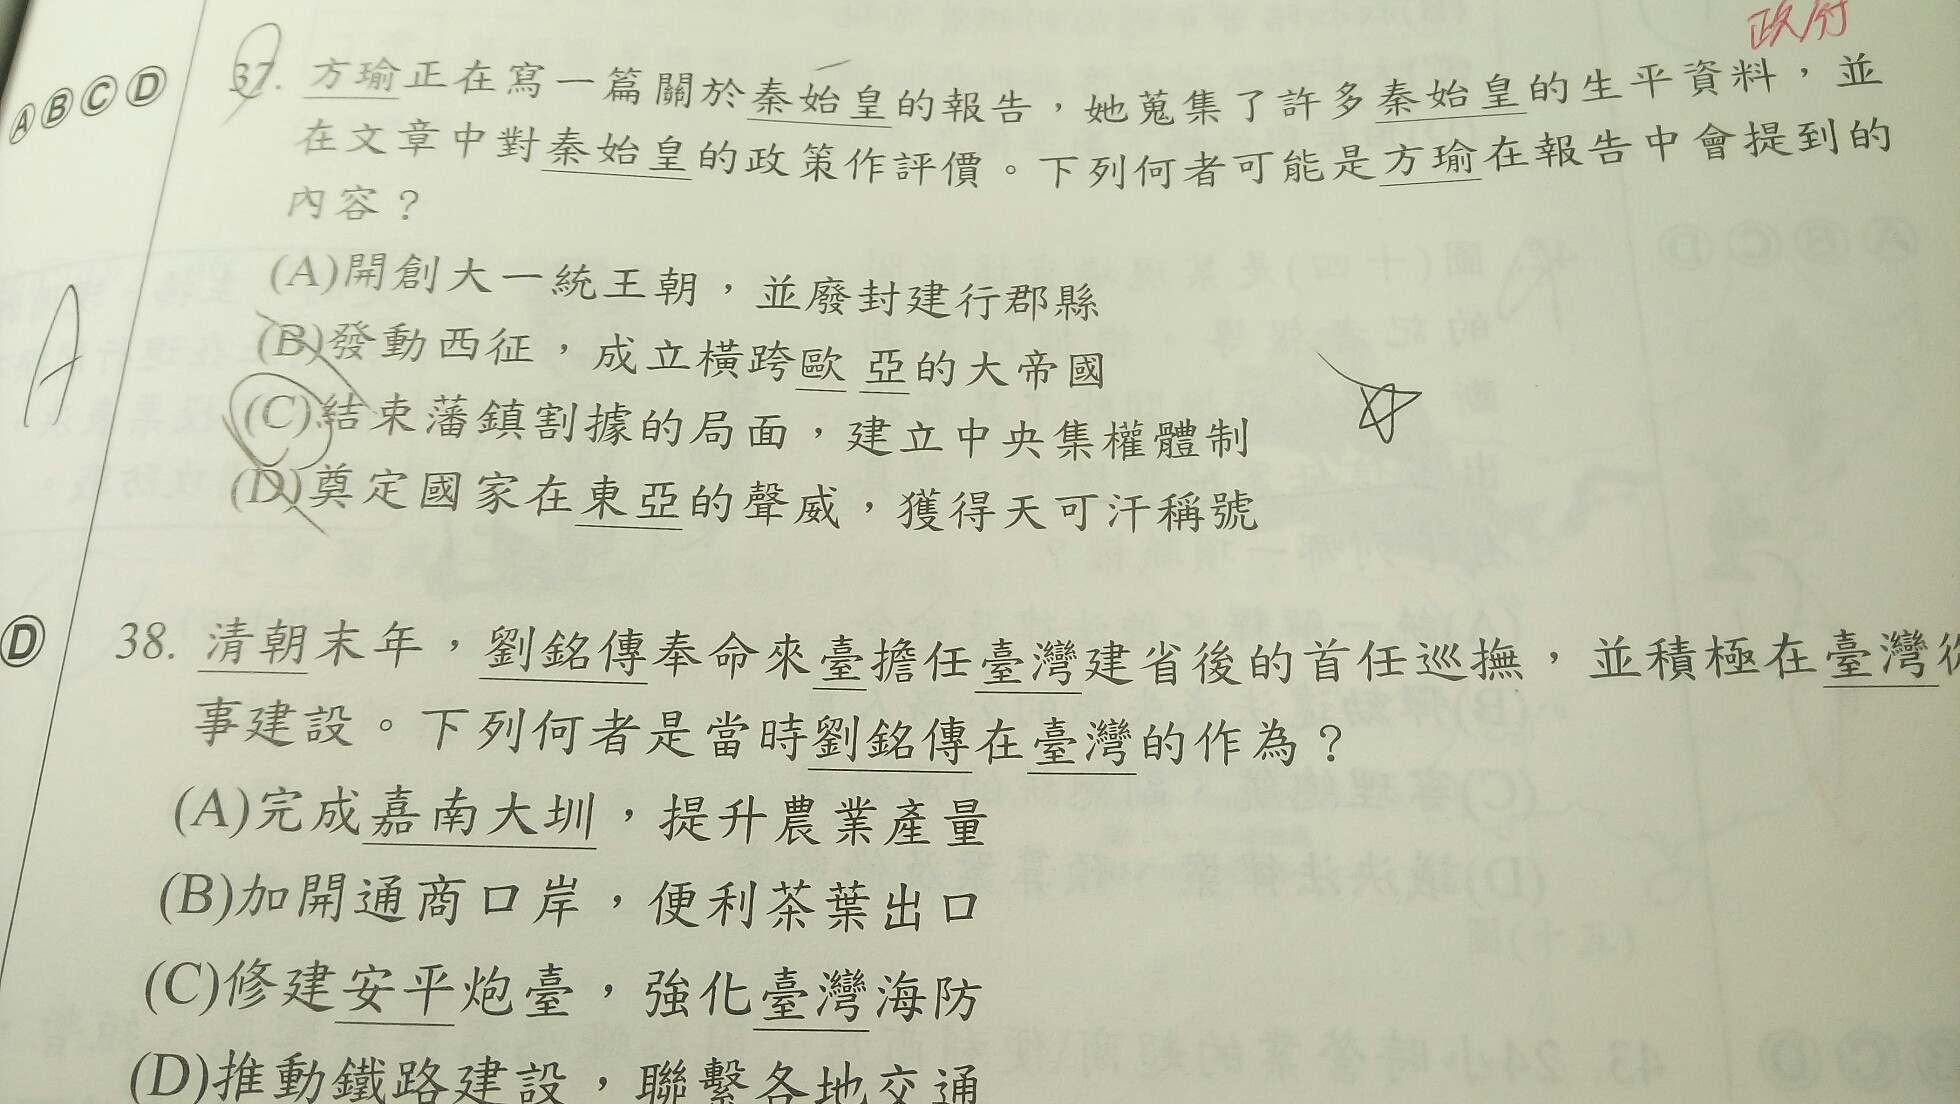 政府
ⒶⒷⒸⒹ
37. 方瑜正在寫一篇關於秦始皇的報告，她蒐集了許多秦始皇的生平資料，並
在文章中對秦始皇的政策作評價。下列何者可能是方瑜在報告中會提到的
內容？
(A)開創大一統王朝，並廢封建行郡縣
(B)發動西征，成立橫跨歐 亞的大帝國
A
(C)結束藩鎮割據的局面，建立中央集權體制
(D)奠定國家在東亞的聲威，獲得天可汗稱號
Ⓓ
38. 清朝末年，劉銘傳奉命來臺擔任臺灣建省後的首任巡撫，並積極在臺灣從
事建設。下列何者是當時劉銘傳在臺灣的作為？
(A)完成嘉南大圳，提升農業產量
(B)加開通商口岸，便利茶葉出口
(C)修建安平炮臺，強化臺灣海防
(D)推動鐵路建設，聯繫各地交通